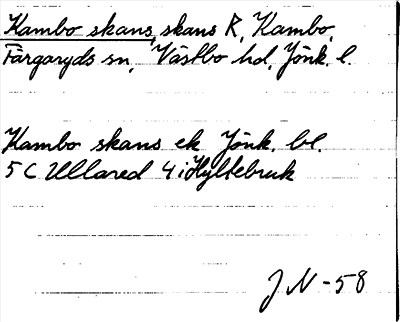 Kambo skans, skans R, Kambo,
Färgaryds sn, Västbo hd, Jönk. l.
Kambo skans ek Jönk. bl.
5 C Ullared 4 i Hyltebruk
J N -58